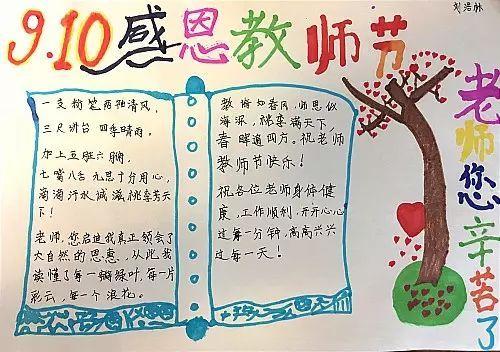 刘浩林
9.10感恩教师节
一支粉笔两袖清风，
三尺讲台 四季晴雨，
加上五脏六腑，
七嘴八舌 九思十分用心，
滴滴汗水 诚滋桃李芳天
下！
老师，您启迪我真正领会了
大自然的恩惠，从此我
读懂了每一瓣绿叶，每一片
彩云，每一个浪花。
教诲如春风，师恩似
海深，桃李满天下，
春晖遍四方。祝老师
教师节快乐！
祝各位老师身体健
康，工作顺利，开开心心
过每一分钟，高高兴兴
过每一天！
老师您辛苦了